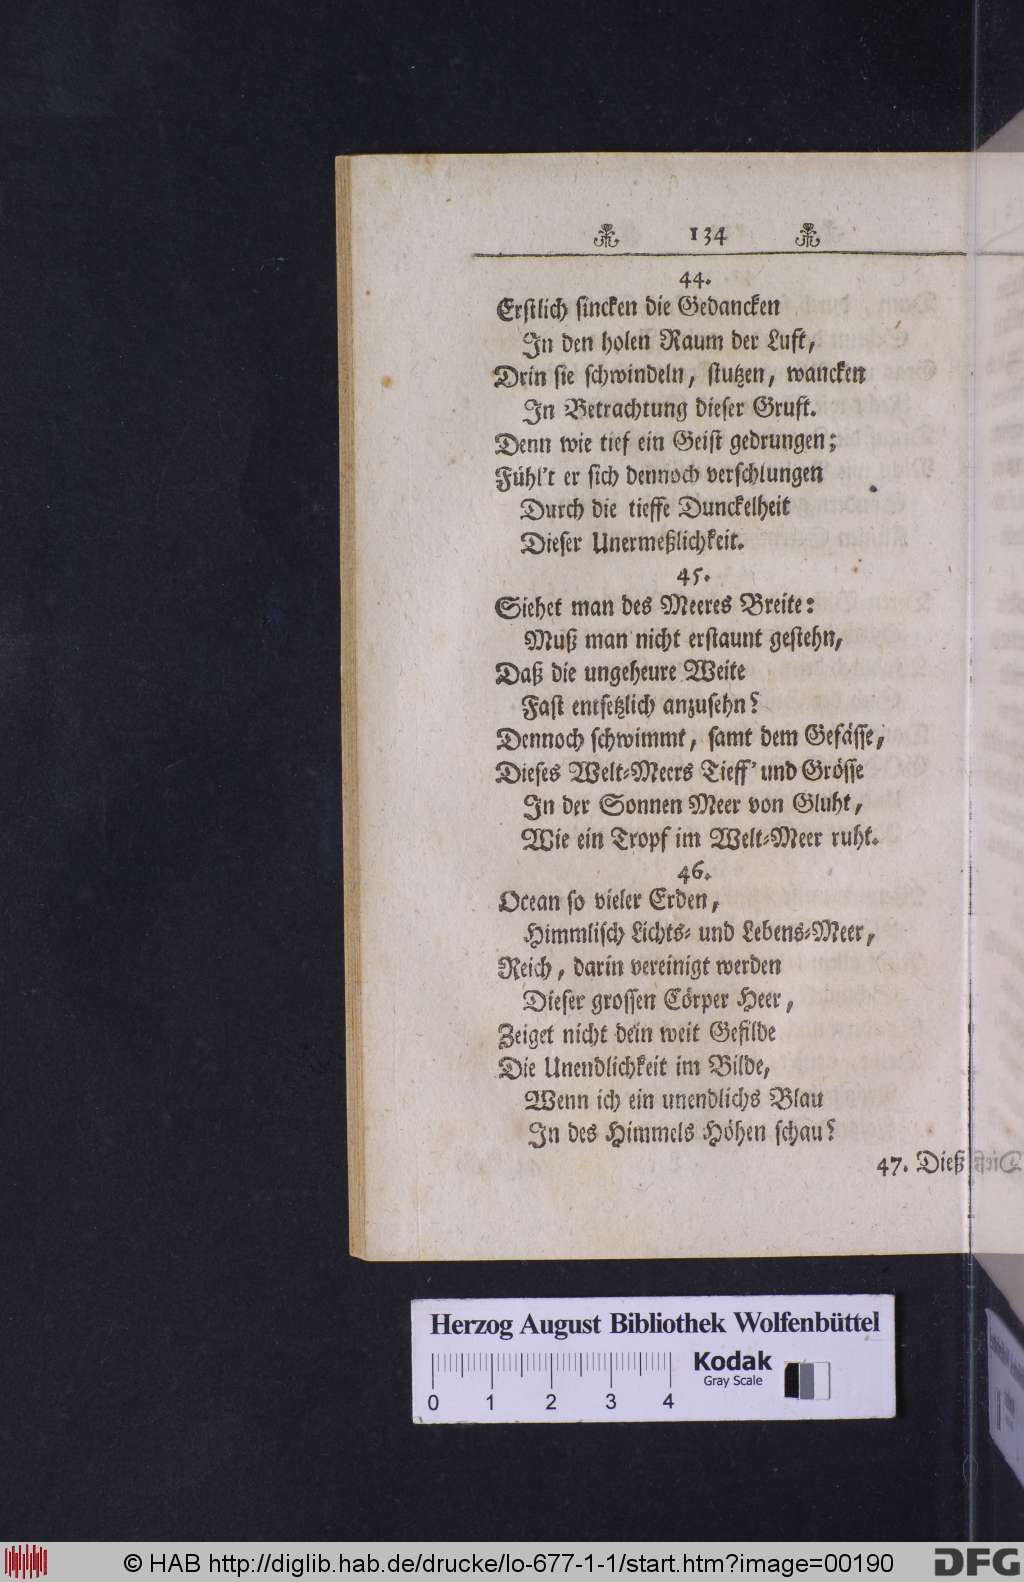 134
44.
Erstlich sincken die Gedancken
In den holen Raum der Luft,
Drin sie schwindeln, stutzen, wancken
In Betrachtung dieser Gruft.
Denn wie tief ein Geist gedrungen;
Fühl't er sich dennoch verschlungen
Durch die tieffe Dunckelheit
Dieser Unermeßlichkeit.
45.
Siehet man des Meeres Breite:
Muß man nicht erstaunt gestehn,
Daß die ungeheure Weite
Fast entsetzlich anzusehn?
Dennoch schwimmt, samt dem Gefässe,
Dieses Welt-Meers Tieff' und Grösse
In der Sonnen Meer von Gluht,
Wie ein Tropf im Welt-Meer ruht.
46.
Ocean so vieler Erden,
Himmlisch Lichts- und Lebens-Meer,
Reich, darin vereinigt werden
Dieser grossen Cörper Heer,
Zeiget nicht dein weit Gefilde
Die Unendlichkeit im Bilde,
Wenn ich ein unendlichs Blau
In des Himmels Höhen schau?
47. Dieß
Herzog August Bibliothek Wolfenbüttel
Kodak
Gray Scale
0 1 2 3 4
© HAB http://diglib.hab.de/drucke/lo-677-1-1/start.htm?image=00190
DFG